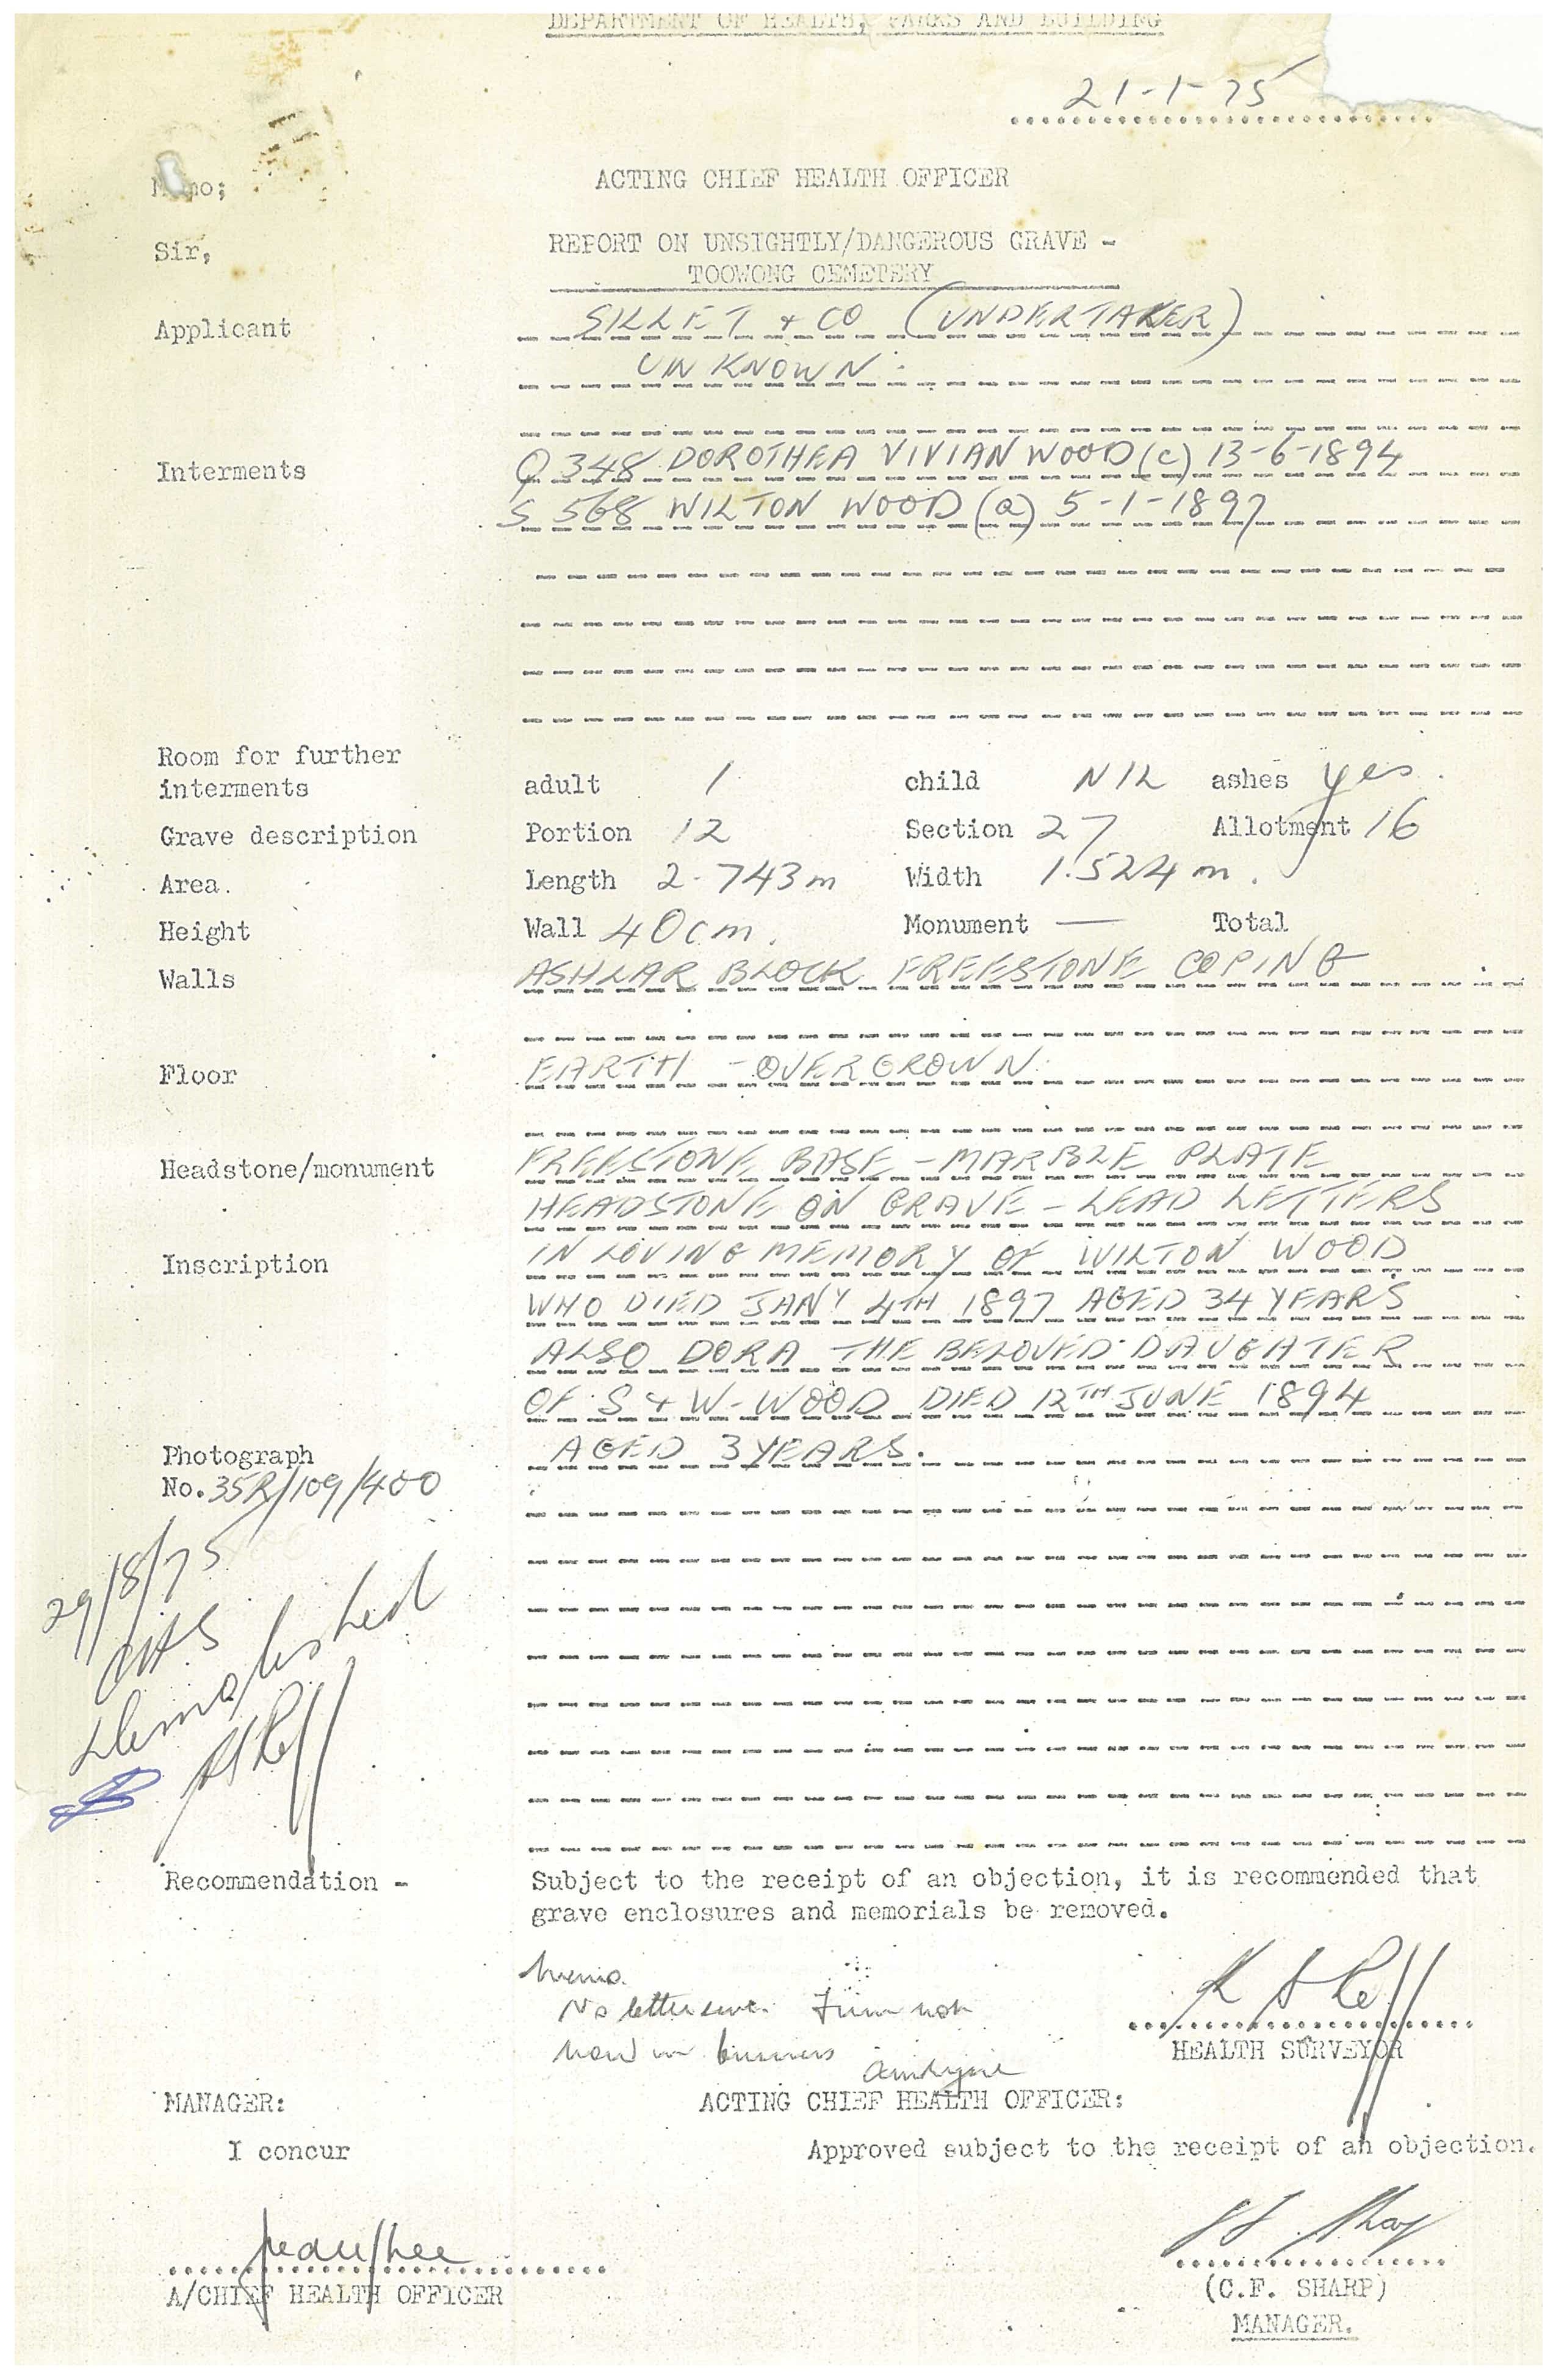 DEPARTMENT OF HEALTH, PARKS AND BUILDING
21-1-75
Memo; ACTING CHIEF HEALTH OFFICER
Sir, REPORT ON UNSIGHTLY/DANGEROUS GRAVE -
TOOWONG CEMETERY
Applicant SILLET + CO (UNDERTAKER)
UNKNOWN.
Interments Q 348 DOROTHEA VIVIAN WOOD (c) 13-6-1894
S 568 WILTON WOOD (a) 5-1-1897
Room for further
interments adult 1 child NIL ashes yes.
Grave description Portion 12 Section 27 Allotment 16
Area. Length 2.743m Width 1.524m.
Height Wall 40cm. Monument — Total
Walls ASHLAR BLOCK FREESTONE COPING
Floor EARTH - OVERGROWN.
Headstone/monument FREESTONE BASE - MARBLE PLATE
HEADSTONE ON GRAVE - LEAD LETTERS
Inscription IN LOVING MEMORY OF WILTON WOOD
WHO DIED JANY 4TH 1897 AGED 34 YEARS
ALSO DORA THE BELOVED DAUGHTER
OF S + W - WOOD DIED 12TH JUNE 1894
Photograph AGED 3 YEARS.
No. 35R/109/400
29/8/75
Demolished
Recommendation - Subject to the receipt of an objection, it is recommended that
grave enclosures and memorials be removed.
Memo.
No letter sent. Firm not
now in business
HEALTH SURVEYOR
MANAGER: ACTING CHIEF HEALTH OFFICER:
I concur Approved subject to the receipt of an objection.
A/CHIEF HEALTH OFFICER (C.F. SHARP)
MANAGER.